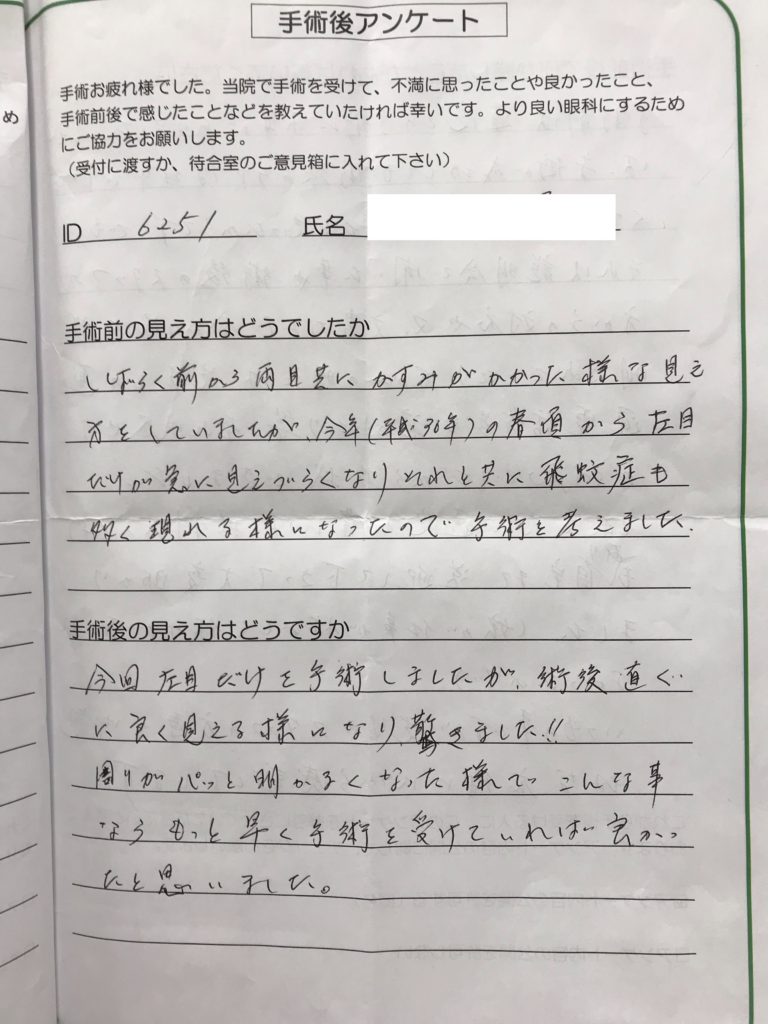 手術後アンケート
手術お疲れ様でした。当院で手術を受けて、不満に思ったことや良かったこと、
手術前後で感じたことなどを教えていたければ幸いです。より良い眼科にするため
にご協力をお願いします。
（受付に渡すか、待合室のご意見箱に入れて下さい）
め
ID 6251 氏名
手術前の見え方はどうでしたか
しばらく前から両目共にかすみがかかった様な見え
方をしていましたが、今年(平成30年)の春頃から左目
だけが急に見えづらくなりそれと共に飛蚊症も
多く現れる様になったので手術を考えました.
手術後の見え方はどうですか
今回左目だけを手術しましたが、術後直ぐ
に良く見える様になり、驚きました!!
周りがパッと明かるくなった様でっこんな事
ならもっと早く手術を受けていれば良かっ
たと思いました。